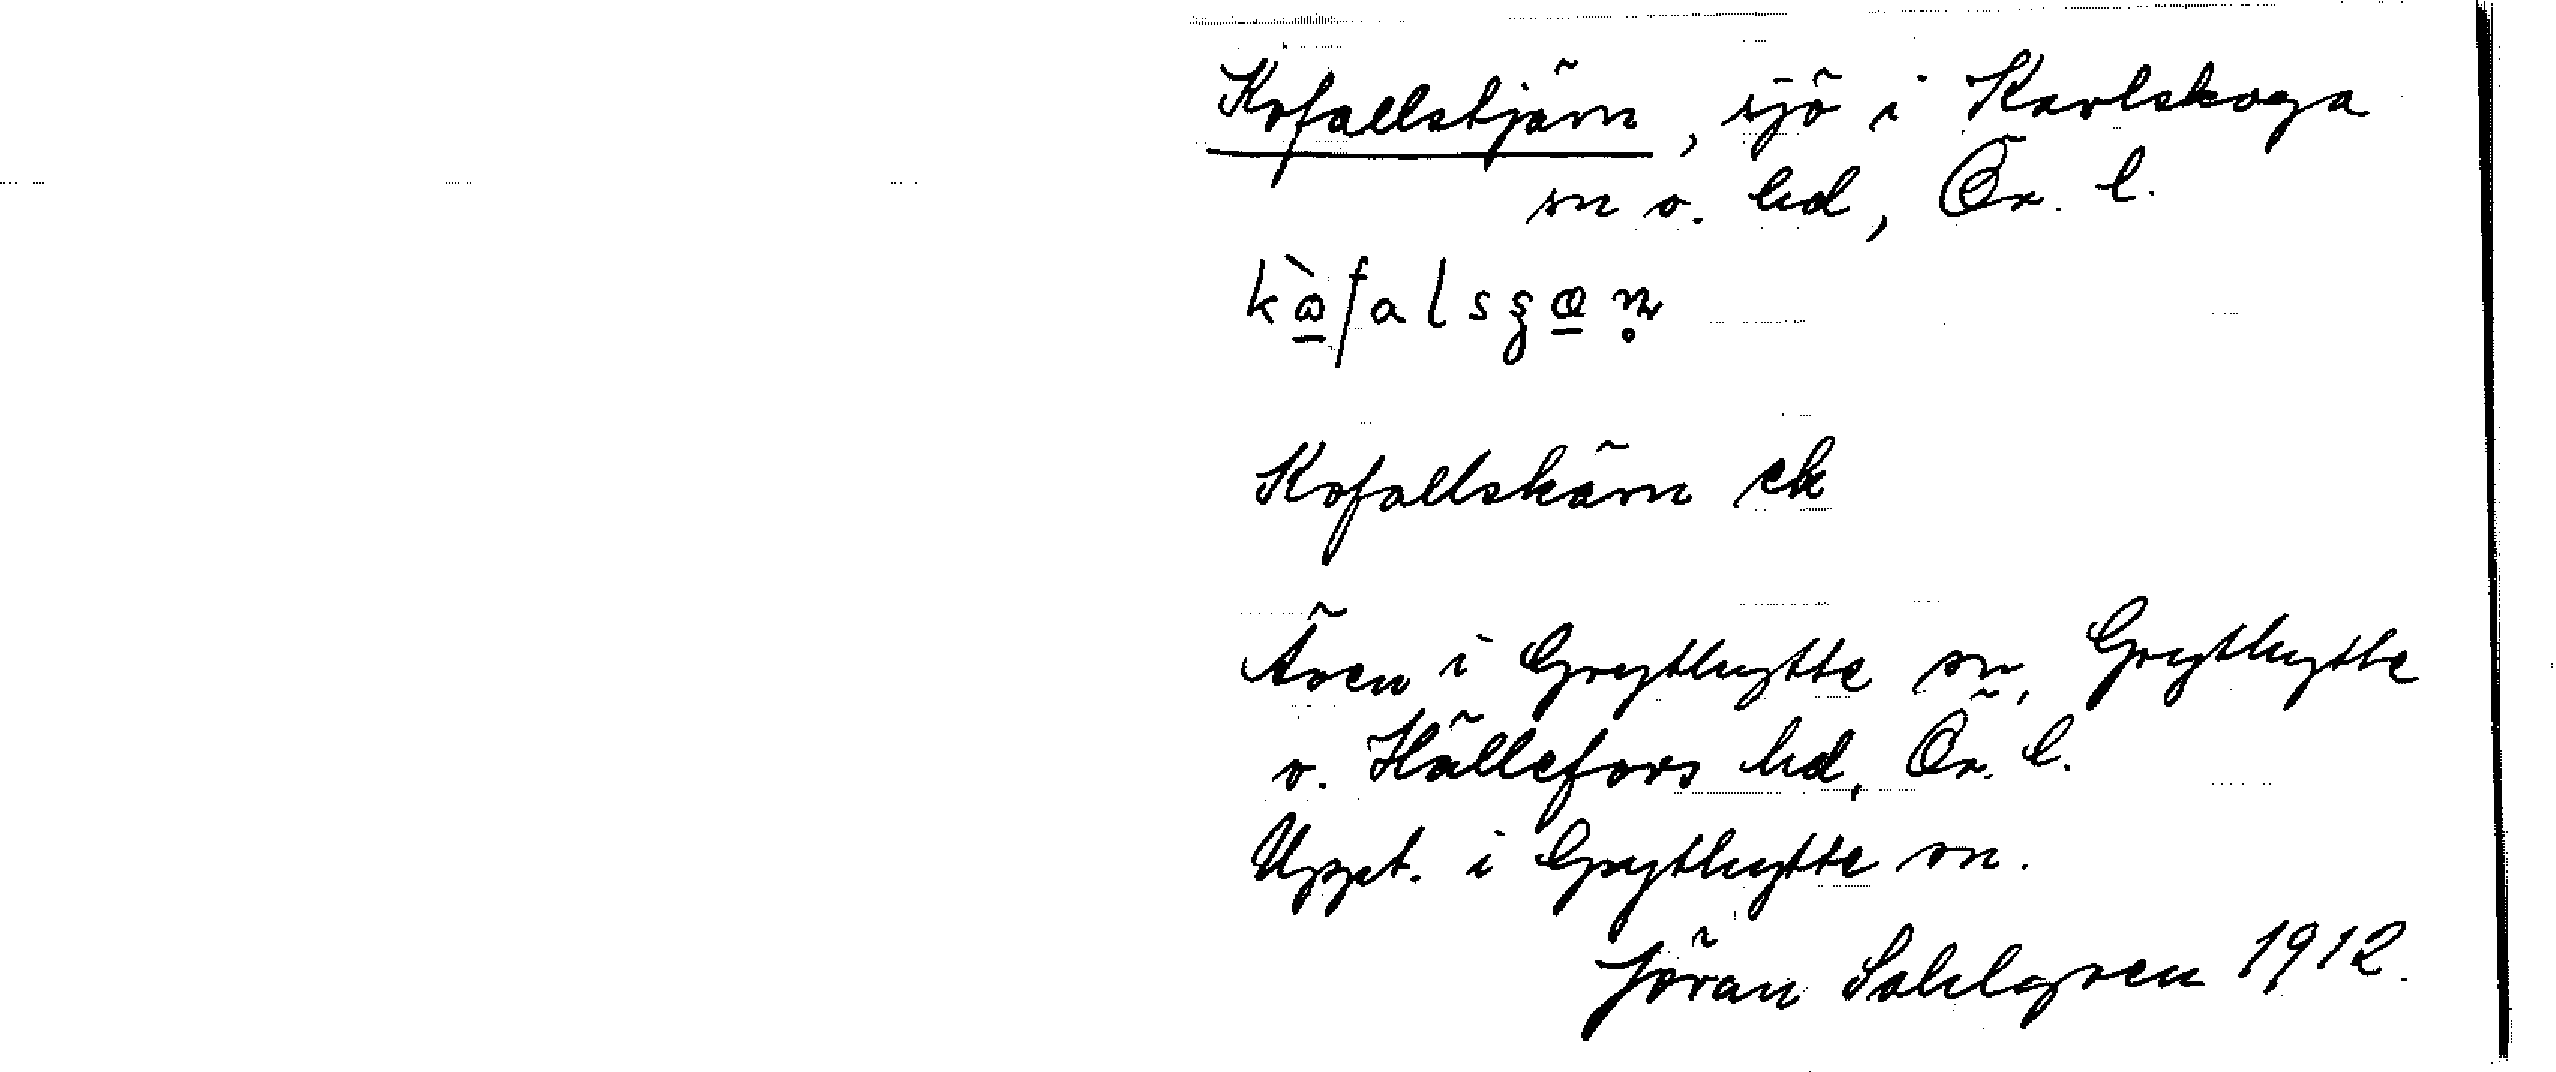 Kofallstjärn, sjö i Karlskoga
sn o. hd, Ör. l.
Kofallskärn ek
Även i Grythytte sn, Grythytte
o. Hällefors hd, Ör. l.
Uppt. i Grythytte sn.
Jöran Sahlgren 1912.